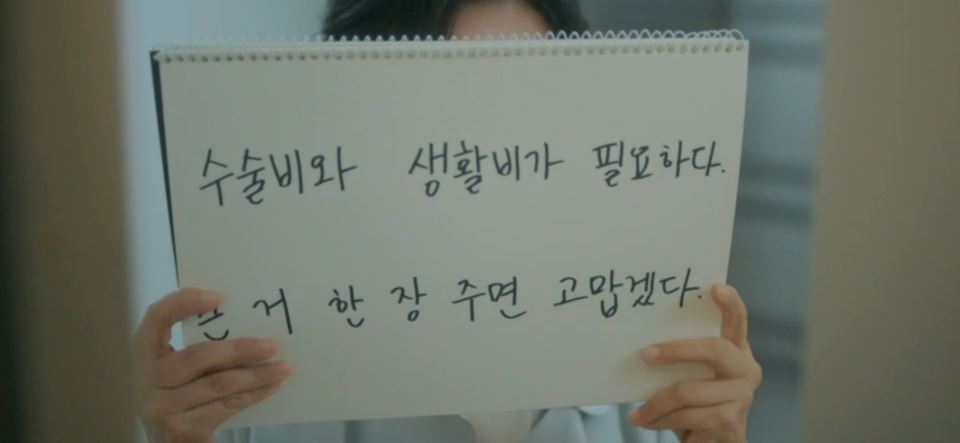 수술비와 생활비가 필요하다.
거 한 장 주면 고맙겠다.